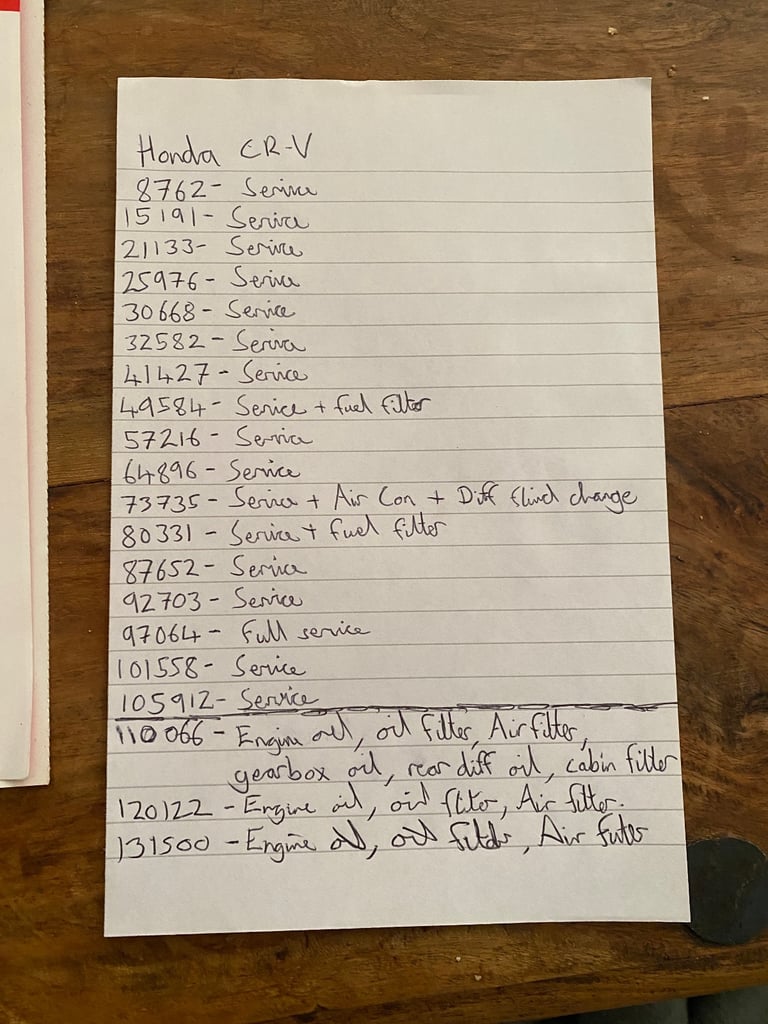 Honda CR-V
8762 - Service
15191 - Service
21133 - Service
25976 - Service
30668 - Service
32582 - Service
41427 - Service
49584 - Service + fuel filter
57216 - Service
64896 - Service
73735 - Service + Air Con + Diff fluid change
80331 - Service + Fuel filter
87652 - Service
92703 - Service
97064 - Full service
101558 - Service
105912 - Service
110066 - Engine oil, oil filter, Air filter,
gearbox oil, rear diff oil, cabin filter
120122 - Engine oil, oil filter, Air filter.
131500 - Engine oil, oil filter, Air filter